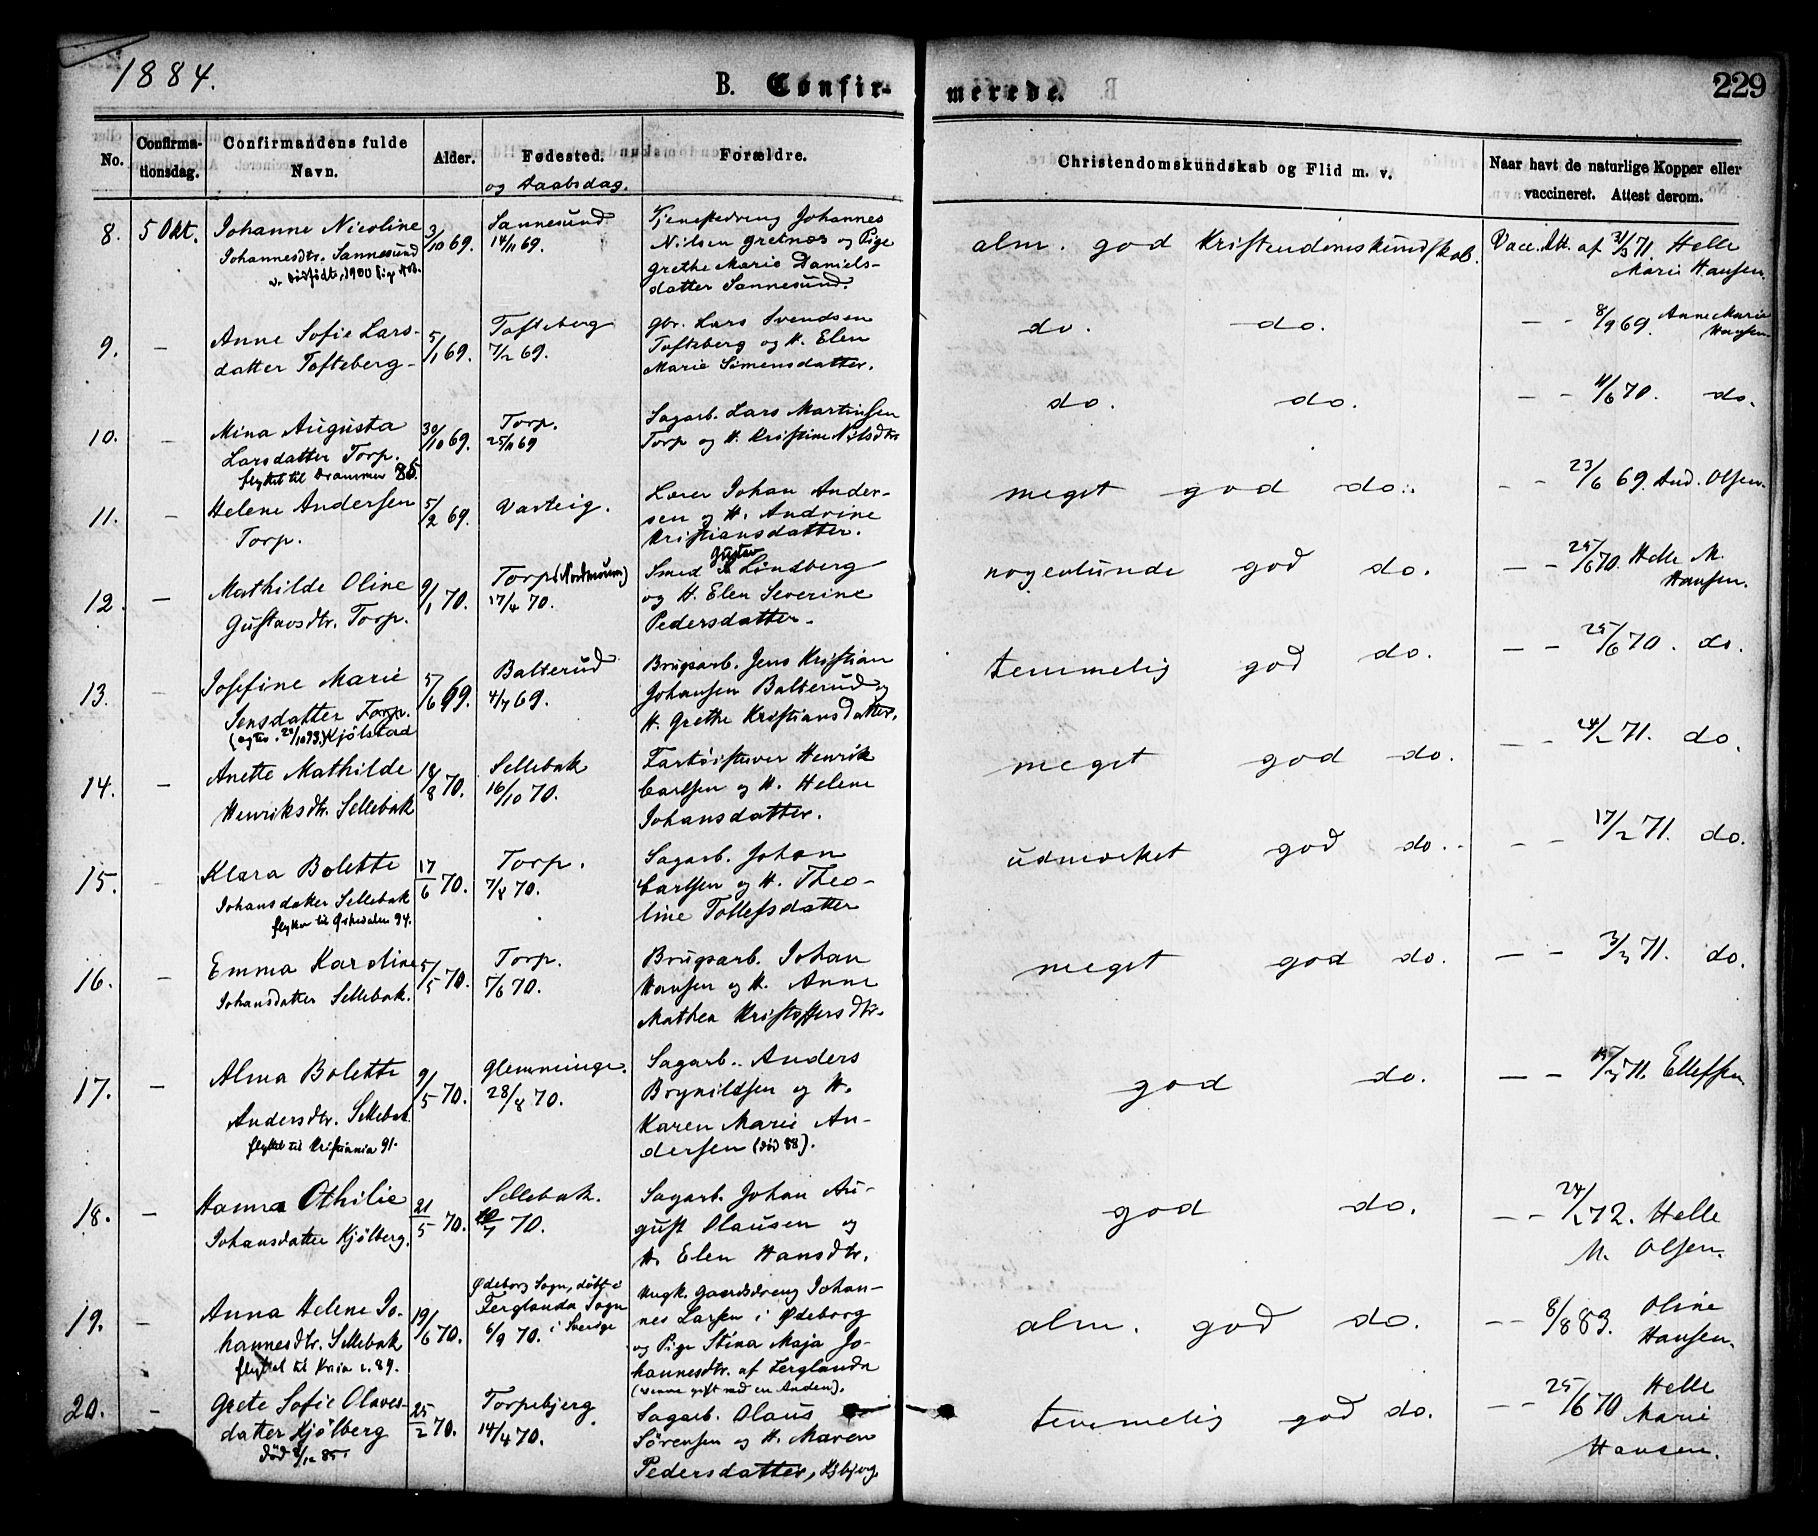 1884.
B. Confir-
merede.
229
No.
Confirma-
tionsdag.
Confirmandens fulde
Navn.
Alder.
Fødested.
og Daabsdag.
Forældre.
Christendomskundskab og Flid m. v.
Naar havt de naturlige Kopper eller
vaccineret. Attest derom.
8. 5 Okt. Johanne Nicoline 3/10 69. Sannesund Tjenestedreng Johannes alm. god Kristendomskundskab. Vacc. Att. af 31/3 71. Helle
Johannesdtr. Sannesund 14/11 69. Nilsen Gretnes og Pige Marie Hansen.
Grethe Marie Daniels-
datter Sannesund.
9. — Anne Sofie Lars- 5/1 69. Tofteberg Gbr. Lars Svendsen do. do. — - 8/9 69. Anne Marie
datter Tofteberg- 7/2 69. Tofteberg og H. Elen Hansen.
Marie Simensdatter.
10. — Mina Augusta 30/10 69. Torp. Sagarb. Lars Martinsen do. do. — - 4/6 70. do.
Larsdatter Torp. 25/11 69 Torp og H. Kristine Nilsdtr
flyttet til Drammen 85.
11. — Helene Andersen 5/2 69. Varteig. Lærer Johan Ander- meget god do. — - 23/6 69. And. Olsen.
Torp. sen og H. Andrine
Kristiansdatter.
12. — Mathilde Oline 9/1 70. Torp (Nordmoum) Smed Gustav A Lindberg nogenlunde god do. — - 25/6 70. Helle M.
Gustavsdtr. Torp. 17/4 70. og H. Elen Severine Hansen.
Pedersdatter.
13. — Josefine Marie 5/6 69. Balterud Brugsarb. Jens Kristian temmelig god do. — - 25/6 70. do.
Jensdatter Torp. 4/7 69. Johansen Balterud og
Kjølstad H. Grethe Kristiansdatter.
14. — Anette Mathilde 18/8 70. Sellebak Henrik meget god do. — - 24/2 71. do.
Henriksdtr. Sellebak 16/10 70. Carlsen og H. Helene
Johansdatter.
15. — Klara Bolette 17/6 70. Torp. Sagarb. Johan udmærket god do. — - 17/2 71. do.
Johansdatter Sellebak 7/8 70. Carlsen og H. Theo-
line Tollefsdatter
16. — Emma Karoline 5/5 70. Torp. Brugsarb. Johan meget god do. — - 3/3 71. do.
Johansdatter Sellebak. 5/6 70. Hansen og H. Anne
Mathea Kristoffersdtr.
17. — Alma Bolette 9/5 70. Glemminge. Sagarb. Anders god do. — - 71. Ellefsen
Andersdtr. Sellebak. 28/8 70. Brynildsen og H.
flyttet til Kristiania 91. Karen Marie An-
dersen (død 88).
18. — Hanna Othilie 21/5 70. Sellebak. Sagarb. Johan Au- god do. — - 24/2 72. Helle
Johansdatter Kjølberg. 10/7 70. gust Olausen og M. Olsen.
H. Elen Hansdtr.
19. — Anna Helene Jo- 19/6 70. Ødeborg Sogn, døbt i Ungk. Gaardsdreng Johan- alm. god do. — - 8/8 83. Oline
hannesdtr. Sellebak Ferglanda Sogn nes Larsen i Ødeborg Hansen.
flyttet til Kr.ia 89. 6/9 70. i Sverige og Pige Stina Maja Jo-
hannesdtr. af Ferglanda
(denne gift med en Anden).
20. — Grete Sofie Olaves- 25/2 70. Torpebjerg Sagarb. Olaus temmelig god do. — - 25/6 70 Helle
datter Kjølberg 14/4 70. Sørensen og H. Maren Marie
død 8/12 85. Pedersdatter, Kjbjerg. Hansen.